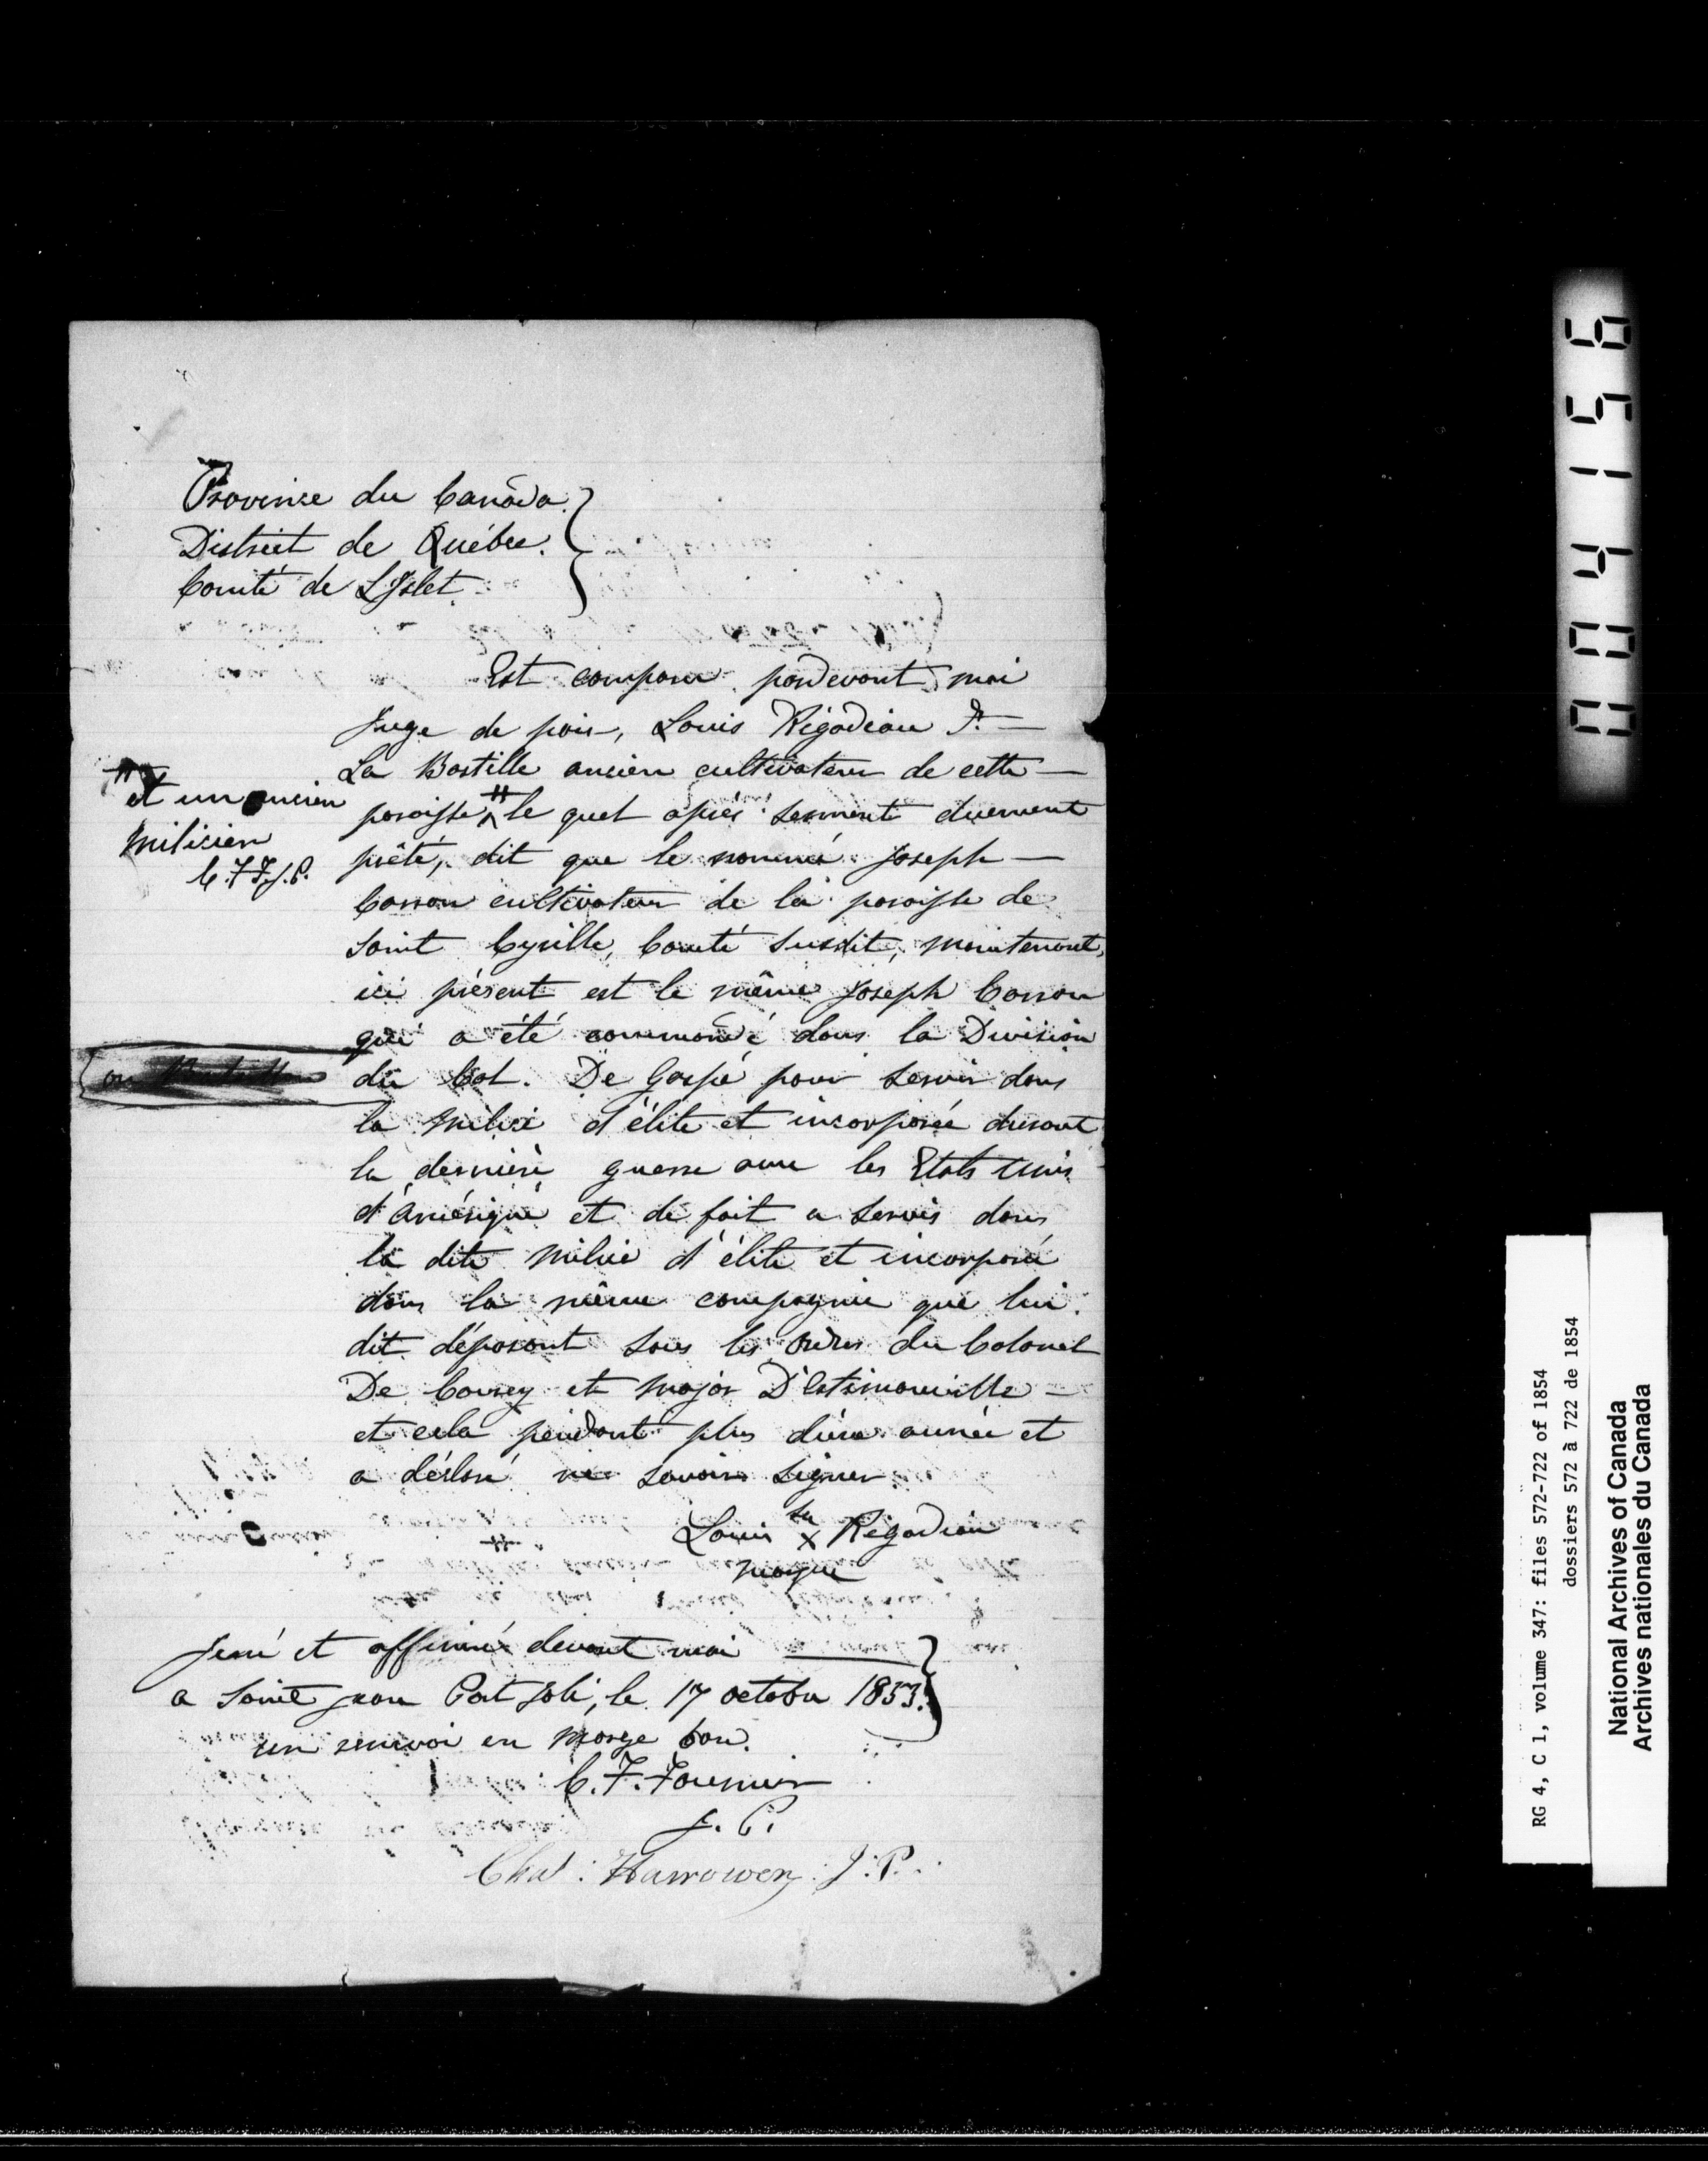 Province du Canada.
District de Québec.
Comté de L'Islet.
Est comparu pardevant moi
Juge de paix, Louis Rigadiau dt. —
La Bastille ancien cultivateur de cette —
paroisse # le quel après serment duement
# et un ancien
milicien
C.F.F. J.P.
prêté, dit que le nommé Joseph —
Caron cultivateur de la paroisse de
Saint Cyrille, Comté Susdit, maintenant,
ici présent est le même Joseph Caron
qui a été commandé dans la Division
ou
du Col. De Gaspé pour servir dans
la milice d'élite et incorporée durant
la dernière guerre avec les Etats Unis
d'Amérique et de fait a servis dans
la dite milice d'élite et incorporé
dans la même compagnie que lui
dit déposant sous les ordres du Colonel
De Courcy et major D'Estimauville —
et cela pendant plus d'une année et
a déclaré ne savoir signer
Louis sa x Rigadiau
marque
Juré et affirmé devant moi
a Saint Jean Port Joli, le 17 octobre 1853.
un renvoi en marge bon.
C. F. Fournier
J. P.
Chas: Harrower J: P.
004156
RG 4, C 1, volume 347: files 572-722 of 1854
dossiers 572 à 722 de 1854
National Archives of Canada
Archives nationales du Canada